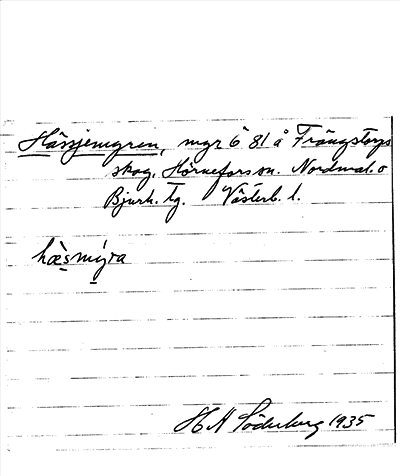 Hässjemyren, myr ö 81 å Frängstorps
skog, Hörnefors sn. Nordmal. o
Bjurh. tg. Västerb. l.
hæsmýra
H A Söderberg 1935